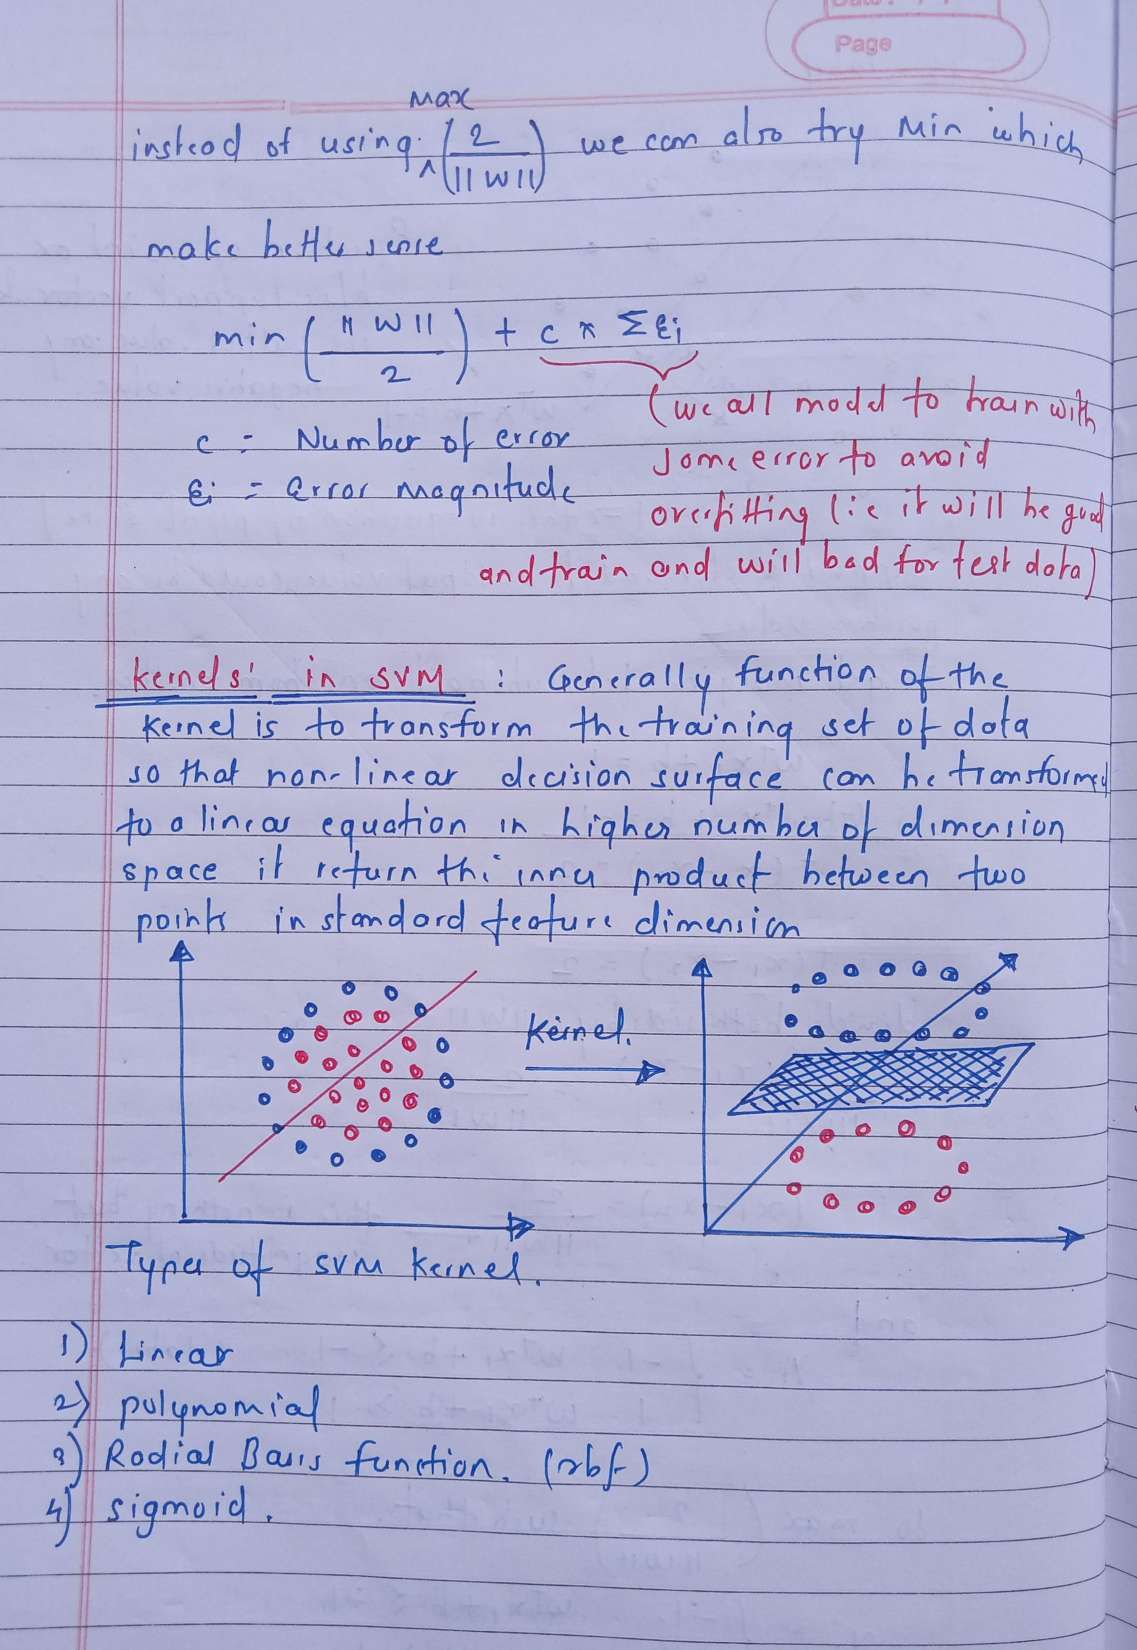 Page
Max
instead of using ^ (2 / ||W||) we can also try Min which
make better sense
min (||W|| / 2) + c x Σ ξi
(we all model to train with
c = Number of error
some error to avoid
ξi = Error magnitude
overfitting (ie it will be good
and train and will bad for test data)
kernels' in SVM : Generally function of the
kernel is to transform the training set of data
so that non-linear decision surface can be transformed
to a linear equation in higher number of dimension
space it return thi inner product between two
points in standard feature dimension
Kernel.
Types of SVM kernel.
1) Linear
2) polynomial
3) Radial Basis function. (rbf)
4) sigmoid.